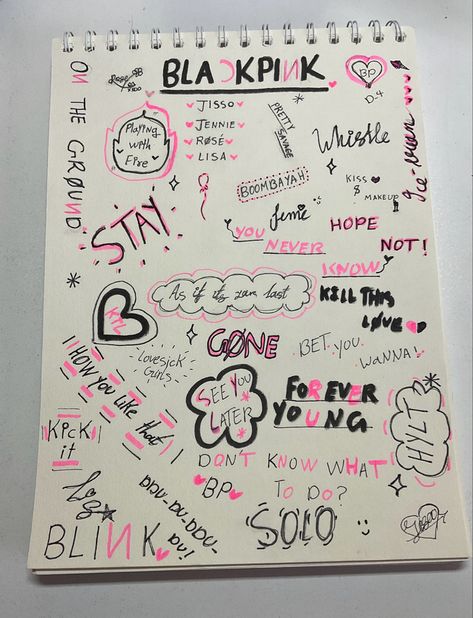 BLACKPINK
BP
D-4
ON THE GRØUND
JISSO
JENNIE
RØSÉ
LISA
PLAYING
with
Fire
PRETTY
SAVAGE
Whistle
Ice-cream
KISS
&
MAKEUP
BOOMBAYAH
Jennie
STAY
YOU
NEVER
KNOW
HOPE
NOT!
As if it's your last
KILL THIS
LØVE
KTL
GØNE
BET YOU
WANNA!
Lovesick
Girls
HOW YOU Like that
SEE YOU
LATER
FOREVER
YOUNG
HYLT
Kick
it
DON'T KNOW WHAT
TO DO?
BP
DDU-DU-DDU-
DU!
SOLO
BLINK